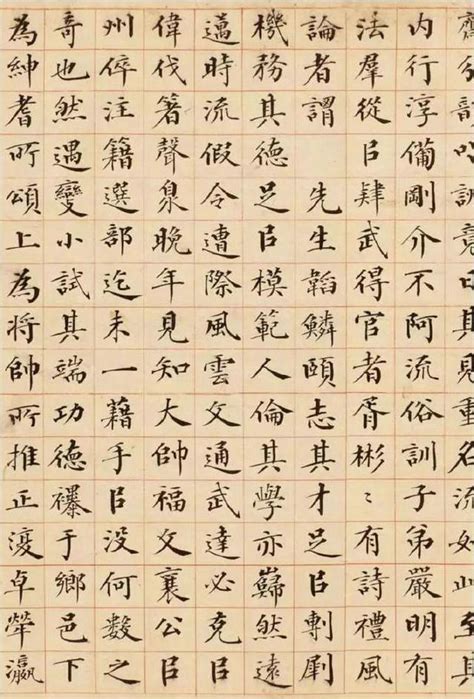 齋分以訓其見重名流如至其
内行淳備剛介不阿流俗訓子弟嚴明有
法羣從㠯肆武得官者胥彬〻有詩禮風
論者謂 先生韜鱗頤志其才足㠯剸劇
機務其德足㠯模範人倫其學亦巋然遠
邁時流假令遭際風雲文通武達必克
偉伐箸聲泉晚年見知大帥福文襄公㠯
州倅注籍選部迄未一藉手㠯沒何數之
奇也然遇變小試其端功德襮于鄉邑下
為紳耆所頌上為將帥所推正復卓犖瀛